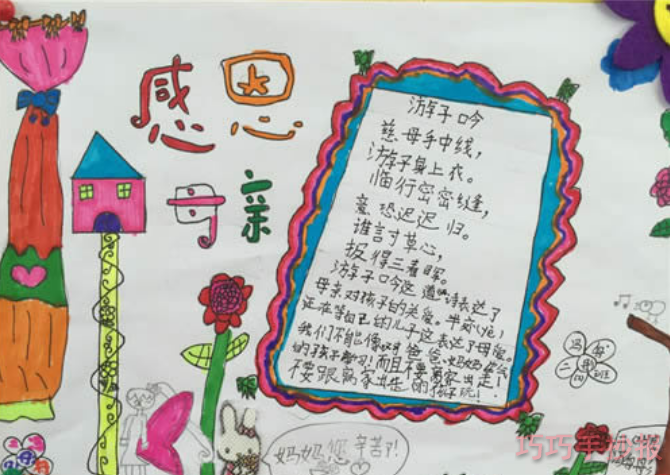 感恩
母亲
游子吟
慈母手中线,
游子身上衣。
临行密密缝,
意恐迟迟归。
谁言寸草心,
报得三春晖。
游子吟这 诗表达了
母亲对孩子的关爱。半夜(yè)
正在等自己的儿子这表达了母爱。
我们不能 对爸爸妈妈
的孩子 而且不要离家出走!
不要跟离家出走的孩子玩!
妈妈您辛苦了!
二 班
巧巧手抄报